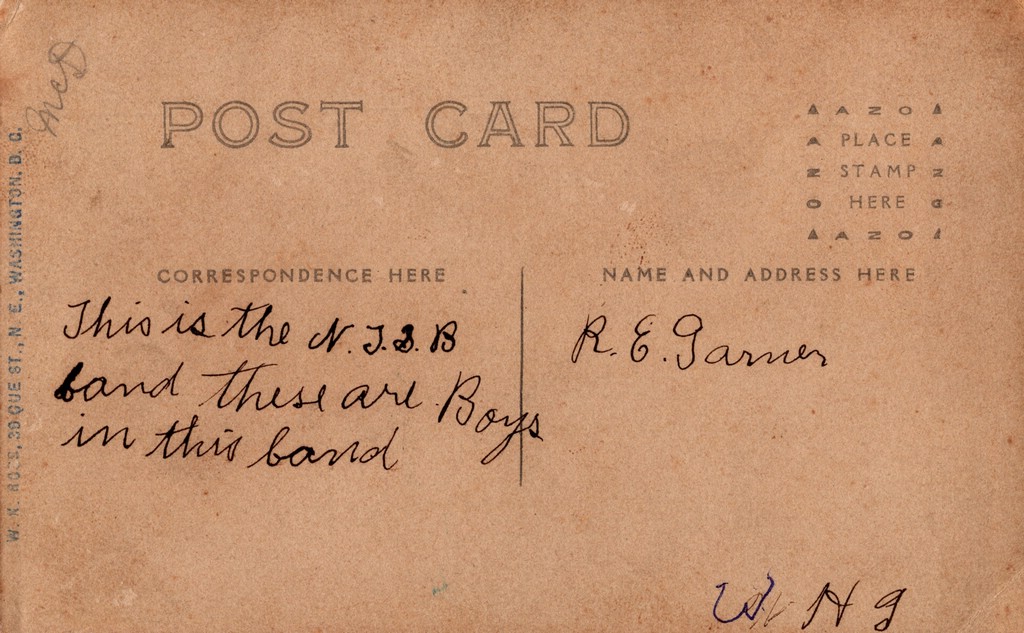 McD
POST CARD
AZO
PLACE
STAMP
HERE
AZO
CORRESPONDENCE HERE
NAME AND ADDRESS HERE
This is the N.T.S.B
band these are Boys
in this band
R. E. Garner
W H G
QUE ST., N. E., WASHINGTON, D. C.